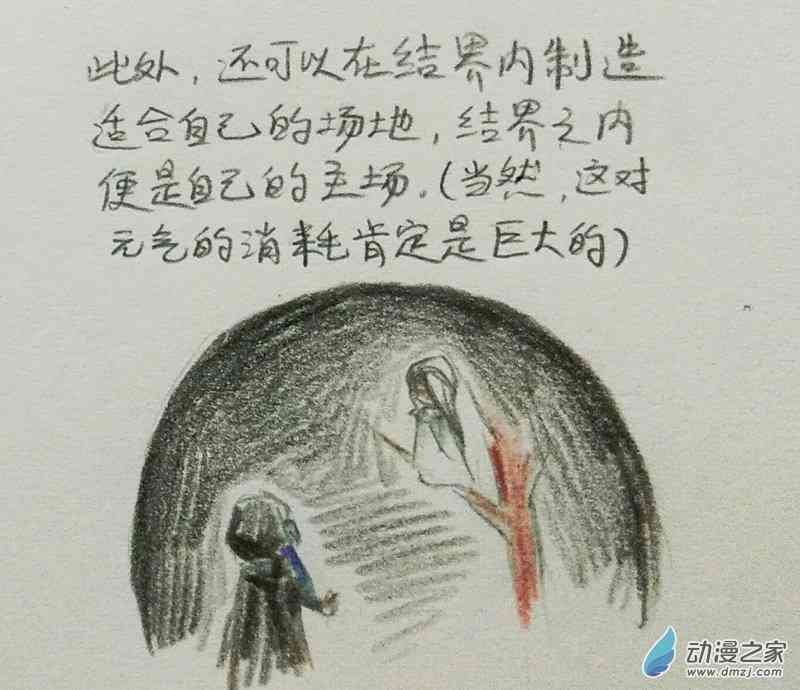 此处，还可以在结界内制造
适合自己的场地，结界之内
便是自己的主场.(当然,这对
元气的消耗肯定是巨大的)
动漫之家
www.dmzj.com